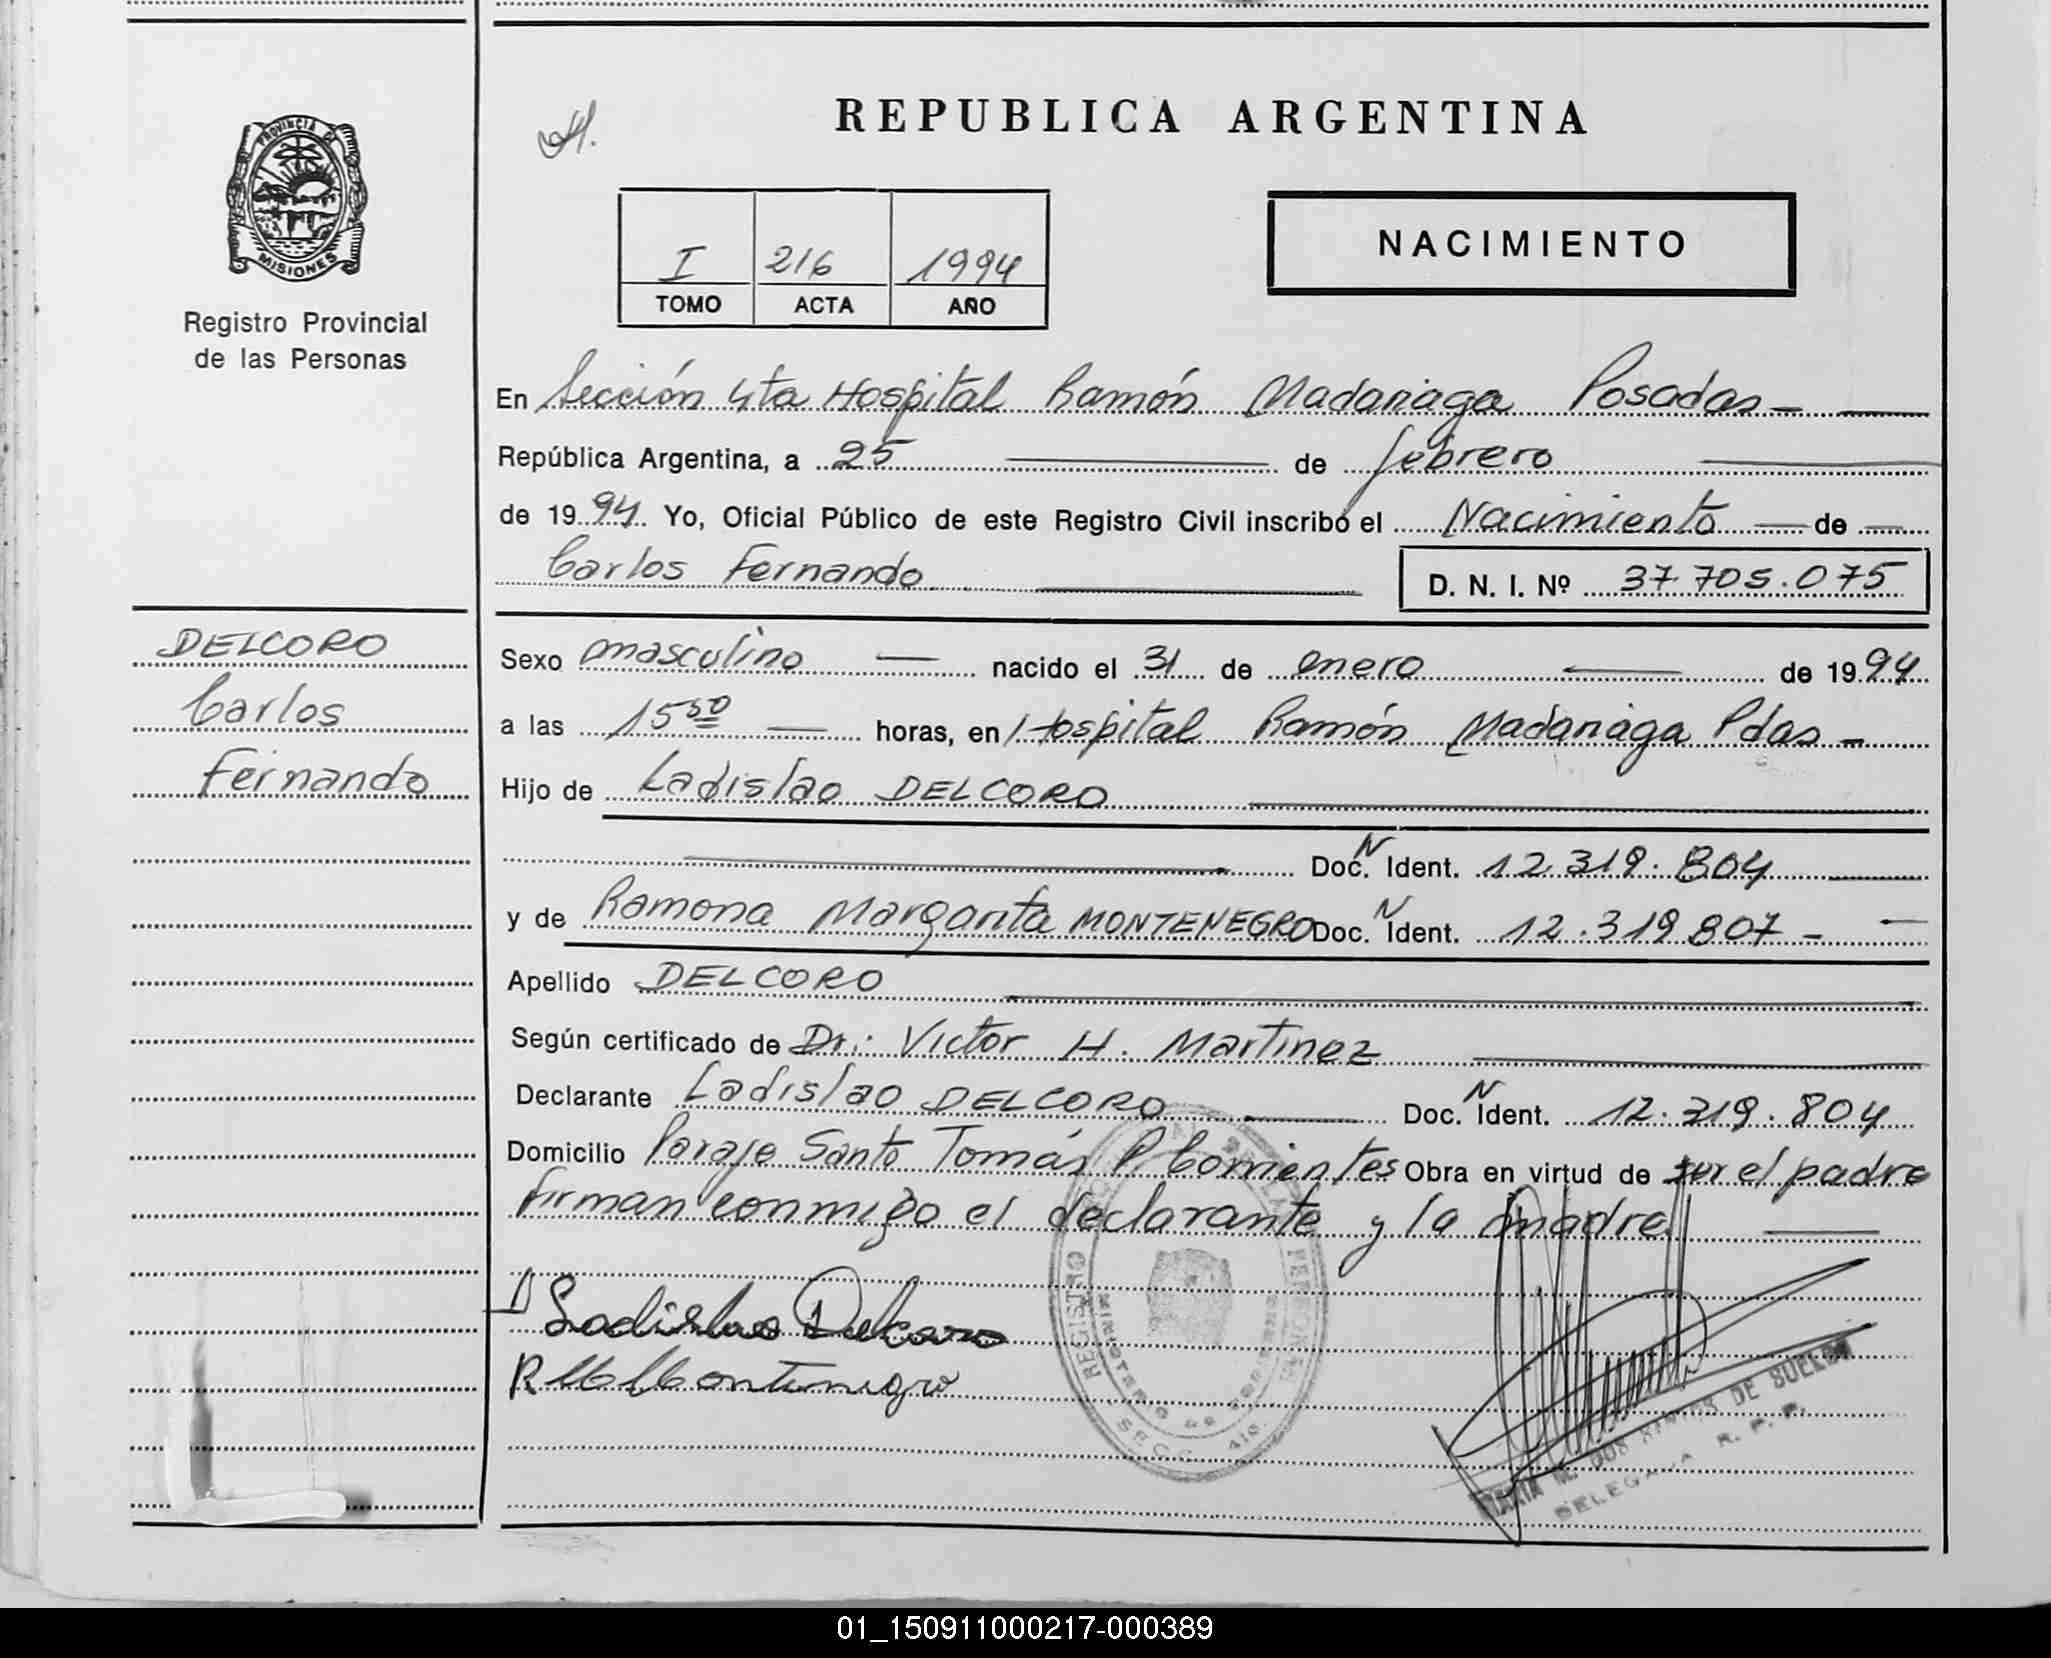 PROVINCIA D
MISIONES
Registro Provincial
de las Personas
DELCORO
Carlos
Fernando
REPUBLICA ARGENTINA
I 216 1994
TOMO ACTA AÑO
NACIMIENTO
En Sección 4ta Hospital Ramón Madariaga Posadas
República Argentina, a 25 de febrero
de 1994. Yo, Oficial Público de este Registro Civil inscribo el Nacimiento de
Carlos Fernando D. N. I. Nº 37.705.075
Sexo masculino nacido el 31 de enero de 1994
a las 15 50 horas, en Hospital Ramón Madariaga Pdas
Hijo de Ladislao DELCORO
Doc. N Ident. 12.319.804
y de Ramona Margarita MONTENEGRO Doc. N Ident. 12.319.807
Apellido DELCORO
Según certificado de Dr.: Victor H. Martinez
Declarante Ladislao DELCORO Doc. N Ident. 12.319.804
Domicilio Paraje Santo Tomás P. Corrientes Obra en virtud de ser el padre
firman conmigo el declarante y la madre
Ladislao Delcoro
R M Montenegro
REGISTRO DE LAS PERSONAS
MINISTERIO DE GOBIERNO
SECC. 4ta.
MARIA M. DOS SANTOS DE SUELDO
DELEGADA R. P. P.
01_150911000217-000389